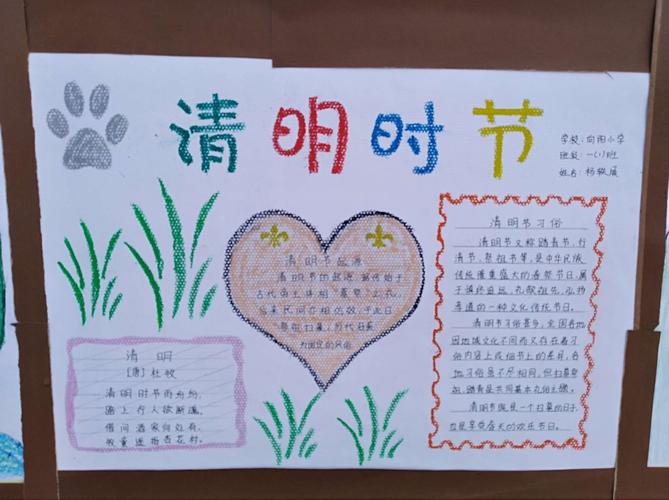 清明时节
学校：向阳小学
班级：一(1)班
姓名：杨轶
清明节起源
清明节的起源，据传始于
古代帝王将相“墓祭”之礼，
后来民间亦相仿效，于此日
祭祖扫墓，历代沿袭
为固定的风俗
清明
[唐]杜牧
清明时节雨纷纷，
路上行人欲断魂。
借问酒家何处有，
牧童遥指杏花村。
清明节习俗
清明节又称踏青节、行
清节、祭祖节等，是中华民族
传统隆重盛大的春祭节日，属
于慎终追远、礼敬祖先、弘扬
孝道的一种文化传统节日。
清明节习俗甚多，全国各地
因地域文化不同而又存在着习
俗内容上或细节上的差异，各
地习俗虽不尽相同，但扫墓祭
祖、踏青是共同基本礼俗主题。
清明节既是一个扫墓的日子，
也是享受春天的欢乐节日。